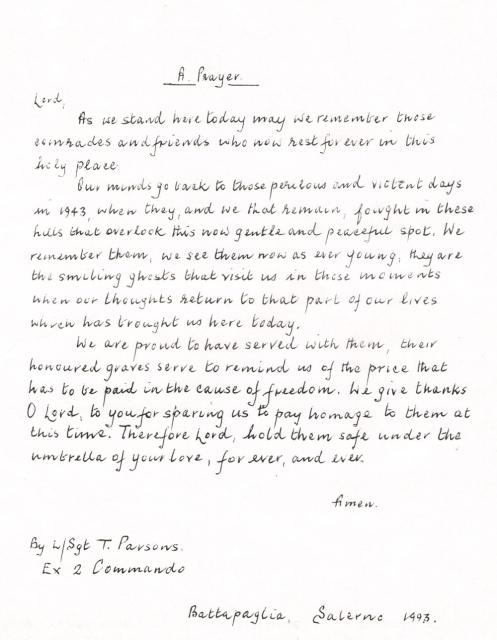 A. Prayer.
Lord,
As we stand here today may we remember those
comrades and friends who now rest for ever in this
holy place.
Our minds go back to those perilous and violent days
in 1943, when they, and we that remain, fought in these
hills that overlook this now gentle and peaceful spot. We
remember them, we see them now as ever young, they are
the smiling ghosts that visit us in those moments
when our thoughts return to that part of our lives
which has brought us here today.
We are proud to have served with them, their
honoured graves serve to remind us of the price that
has to be paid in the cause of freedom. We give thanks
O Lord, to you for sparing us to pay homage to them at
this time. Therefore Lord, hold them safe under the
umbrella of your love, for ever, and ever.
Amen.
By L/Sgt T. Parsons.
Ex 2 Commando
Battapaglia, Salerno 1993.